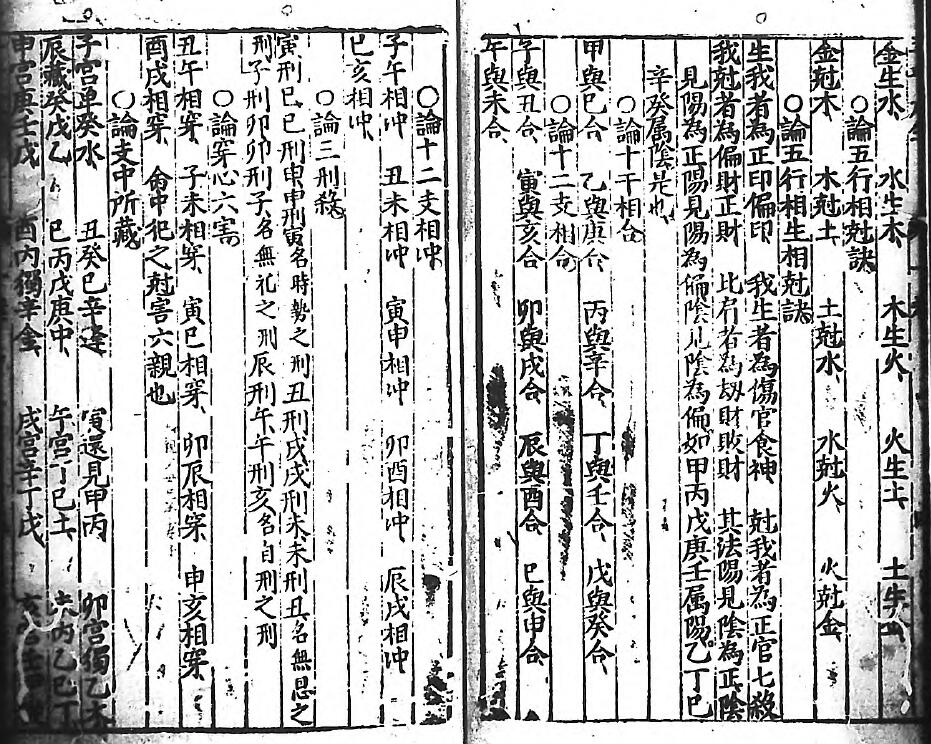 金生水　水生木　木生火　火生土　土生金
○論五行相尅訣
金尅木　木尅土　土尅水　水尅火　火尅金
○論五行相生相尅訣
生我者為正印偏印　我生者為傷官食神　尅我者為正官七殺
我尅者為偏財正財　比肩者為刼財敗財　其法陽見陰為正陰
見陽為正陽見陽為偏陰見陰為偏如甲丙戊庚壬属陽乙丁巳
辛癸属陰是也
○論十干相合
甲與巳合　乙與庚合　丙與辛合　丁與壬合　戊與癸合
○論十二支相合
子與丑合　寅與亥合　卯與戌合　辰與酉合　巳與申合
午與未合
○論十二支相冲
子午相冲　丑未相冲　寅申相冲　卯酉相冲　辰戌相冲
巳亥相冲
○論三刑殺
寅刑巳巳刑申申刑寅名時勢之刑丑刑戌戌刑未未刑丑名無恩之
刑子刑卯卯刑子名無礼之刑辰刑午午刑亥名自刑之刑
○論穿心六害
丑午相穿　子未相穿　寅巳相穿　卯辰相穿　申亥相穿
酉戌相穿　命中犯之尅害六親也
○論支中所藏
子宮单癸水　丑癸巳辛逢　寅還見甲丙　卯宮獨乙木
辰藏癸戊乙　巳丙戊庚中　午宮丁巳土　丙乙巳丁
申宮庚壬戊　酉内獨辛金　戌宮辛丁戊　亥